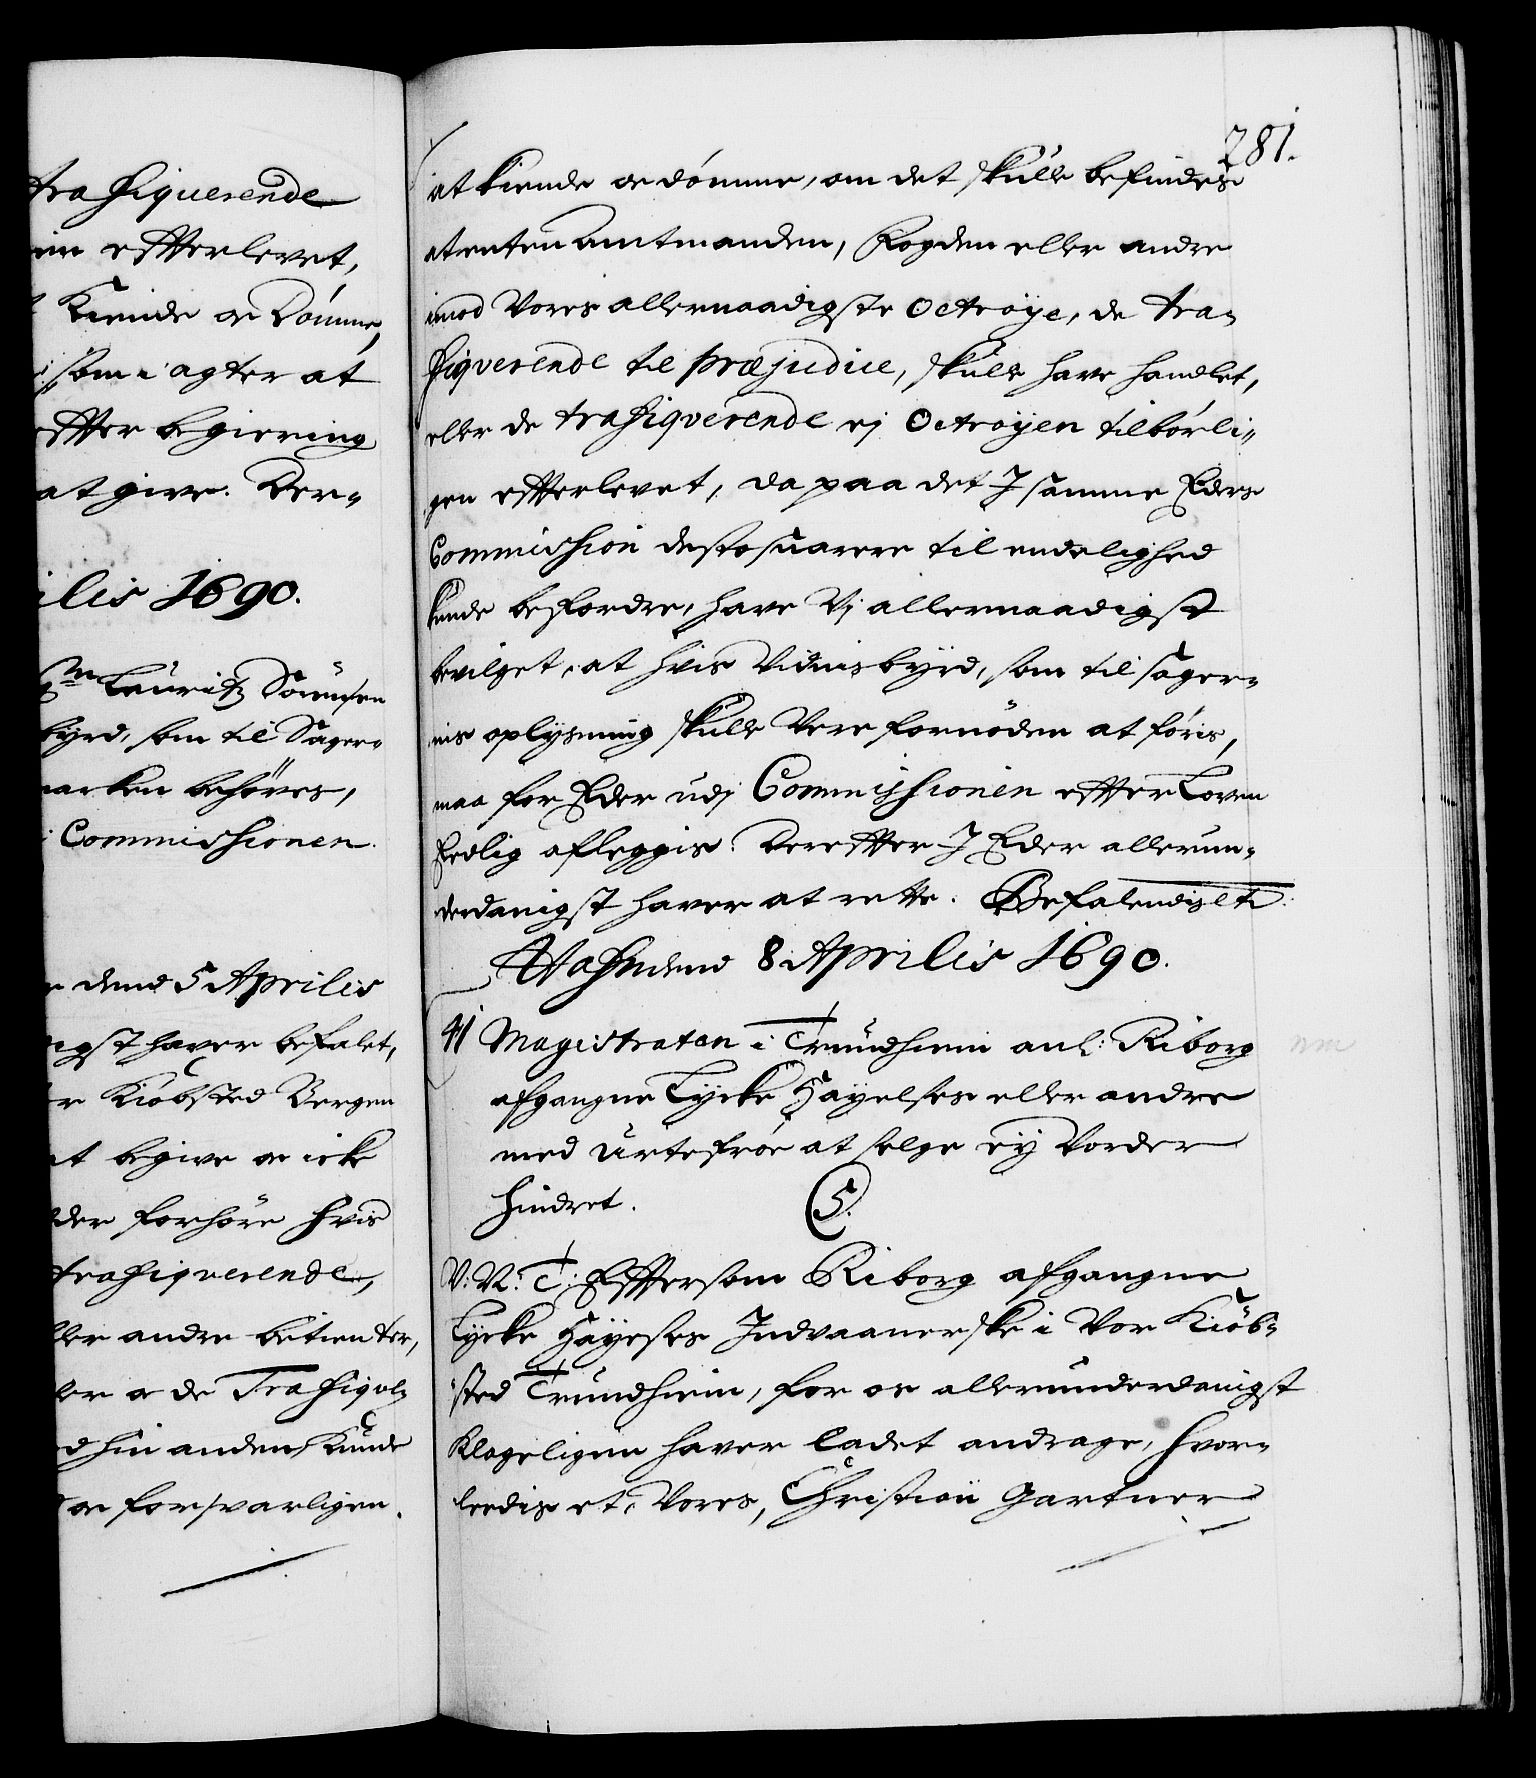 trafiquerende
efterlevet,
Kiende oc Dømme,
som i agter at
efter begiering
at give. Der-
ilis 1690.
Lauritz Sørensen
byrd, som til Sager-
marken behøves,
i Commissionen.
dend 5 Aprilis
igst haver befalet,
Kiøbsted Bergen
at begive oc icke
der forhøre hvis
trafiqverende,
ller andre betienter,
ler oc de Trafiqve-
d hin anden kunde
oc forsvarligen.
281.
at kiende oc dømme, om det skulle befindes
at enten Amtmanden, Fogden eller andre
imod Vores allernaadigste Octroye, de tra-
fiqverende til præjudice, skulle have handlet,
eller de trafiqverende ej Octroyen tilbørli-
gen efterlevet, da paa det I samme Eders
Commission desto snarere til endelighed
kunde befordre, have Vj allernaadigst
bevilget, at hvis Vidnisbyrd, som til sager-
nis oplysning skulle Vere fornøden at føris,
maa for Eder udj Commissionen efter Loven
Eedlig afleggis. Derefter I Eder allerun-
derdanigst haver at rette. Befalendis etc:
Hafn dend 8 Aprilis 1690.
41 Magistraten i Trundhiem anl: Riborg
afgangne Lycke Høyelses eller andre
med Urtefrøe at selge ey Vorder
hindret. 5.
V: N: T: Eftersom Riborg afgangne
Lycke Høyeses Indvaanerske i Vor Kiøb-
sted Trundhiem, for os allerunderdanigst
klageligen haver ladet andrage, hvor-
leedis et, Vores, Christian Gartner